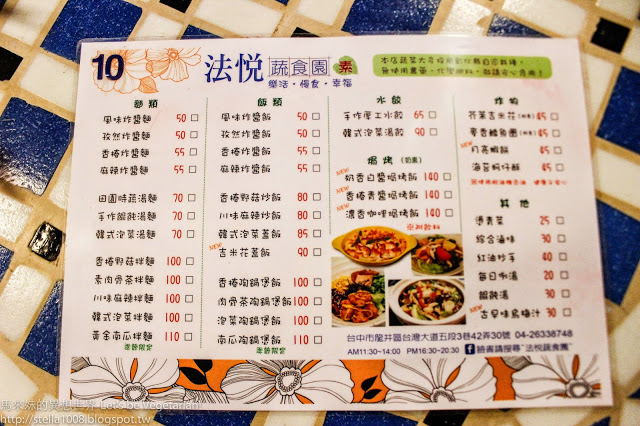 10
法悅
蔬食園
素
樂活・慢食・幸福
麵類
風味炸醬麵 50
孜然炸醬麵 50
香椿炸醬麵 55
麻辣炸醬麵 55
田園時蔬湯麵 70
手作餛飩湯麵 70
韓式泡菜湯麵 70
香椿野菇拌麵 100
素肉骨茶拌麵 100
川味麻辣拌麵 100
韓式泡菜拌麵 100
黃金南瓜拌麵 110
季節限定
飯類
風味炸醬飯 50
孜然炸醬飯 50
香椿炸醬飯 55
麻辣炸醬飯 55
香椿野菇炒飯 80
川味麻辣炒飯 80
韓式泡菜蓋飯 85
NEW 吉米花蓋飯 90
香椿砂鍋煲飯 100
肉骨茶砂鍋煲飯 100
泡菜砂鍋煲飯 100
南瓜砂鍋煲飯 110
季節限定
水餃
手作厚工水餃 65
韓式泡菜水餃 90
焗烤 (奶素)
NEW 奶香白醬焗烤飯 140
NEW 香椿青醬焗烤飯 140
NEW 濃香咖哩焗烤飯 140
※附飲料
炸物
芥茉吉米花 45
45
NEW 月亮蝦餅 45
海苔蚵仔酥 45
其他
燙青菜 25
綜合滷味 30
紅油炒手 40
每日例湯 20
餛飩湯 30
NEW 古早味烏梅汁 30
台中市龍井區台灣大道五段3巷42弄30號 04-26338748
AM11:30~14:00 PM16:30~20:30 臉書請搜尋"法悅蔬食園"
Let's be vegetarian!
http://stella1008.blogspot.tw